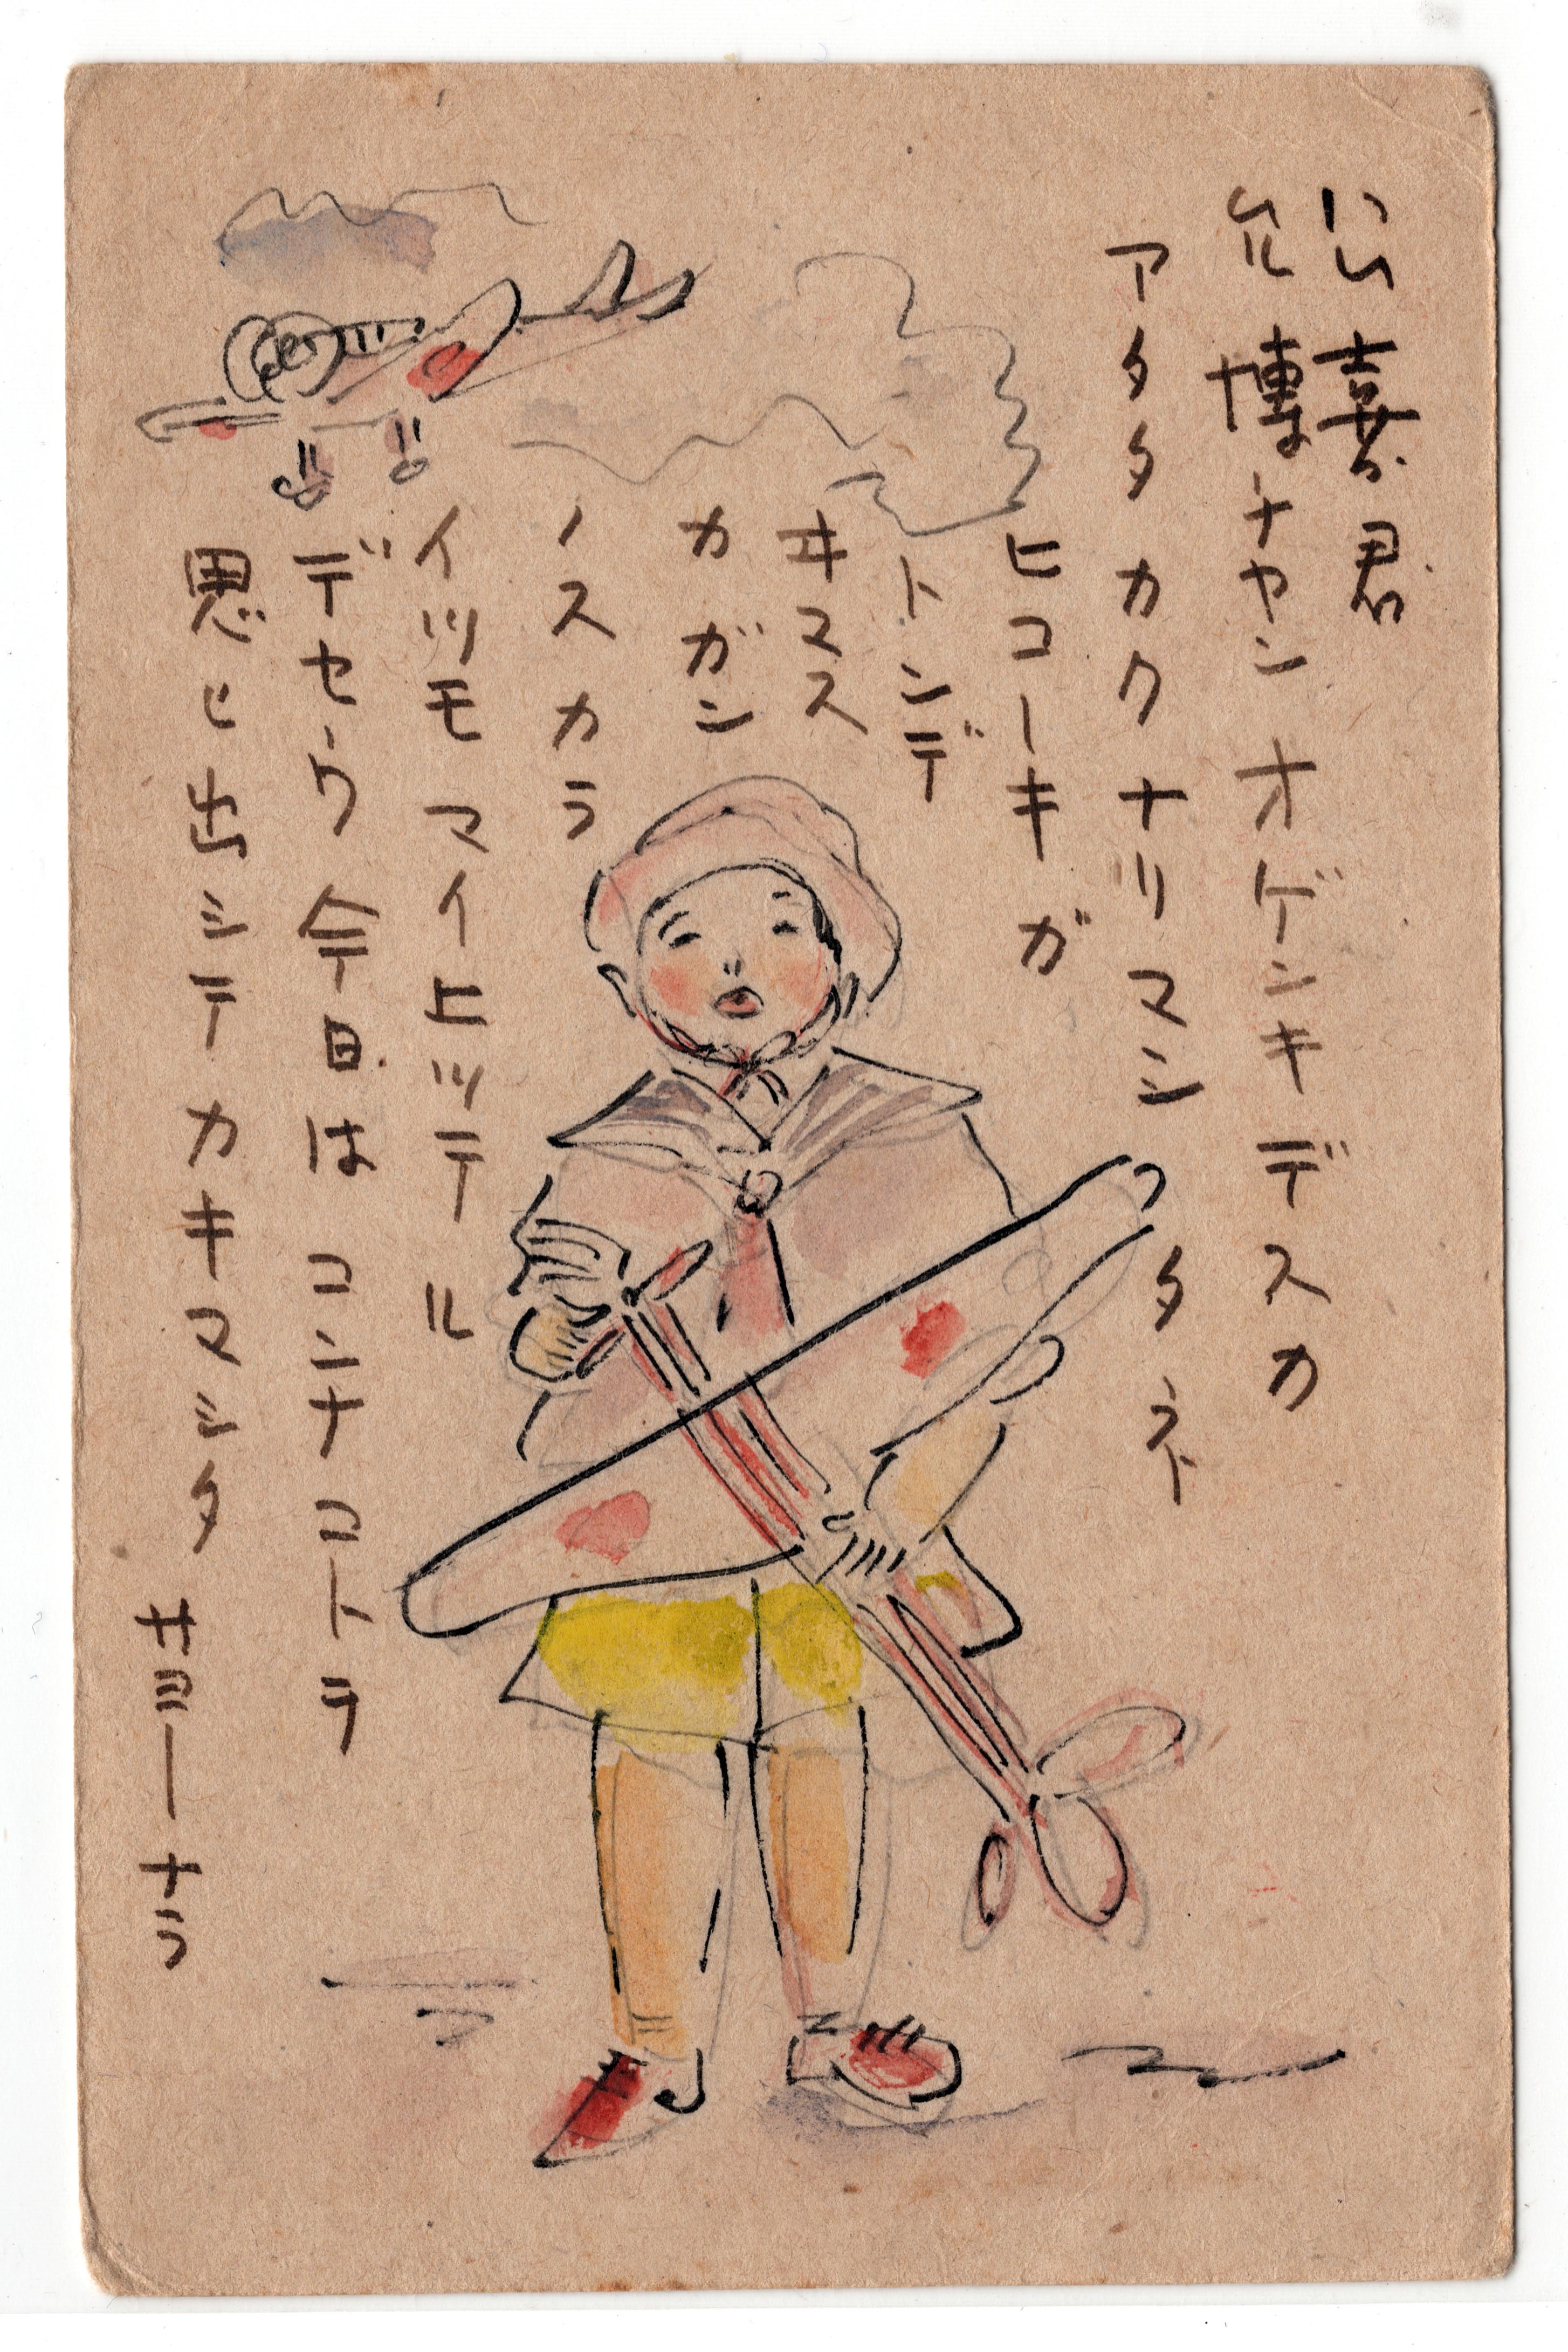 公喜君
允博チヤンオゲンキデスカ
アタタカクナリマシタネ
ヒコーキガ
トンデ
ヰマス
カガン
ノスカラ
イツモマイ上ツテル
デセウ今日はコンナコトヲ
思ヒ出シテカキマシタ
サヨーナラ